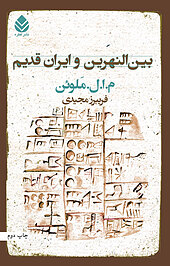 نشر قطره
بین‌النهرین و ایران قدیم
م.ا.ل.ملوئن
فریبرز مجیدی
چاپ دوم